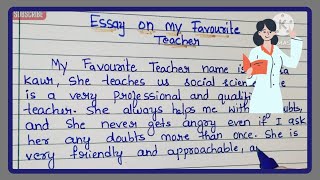 SUBSCRIBE
Essay on my Favourite
Teacher
My Favourite Teacher name is
kaur, She teaches us social
is a very Professional and
teacher. She always helps me with
and She never gets angry even if I ask
her any doubts more than once. She is
very friendly and approachable,